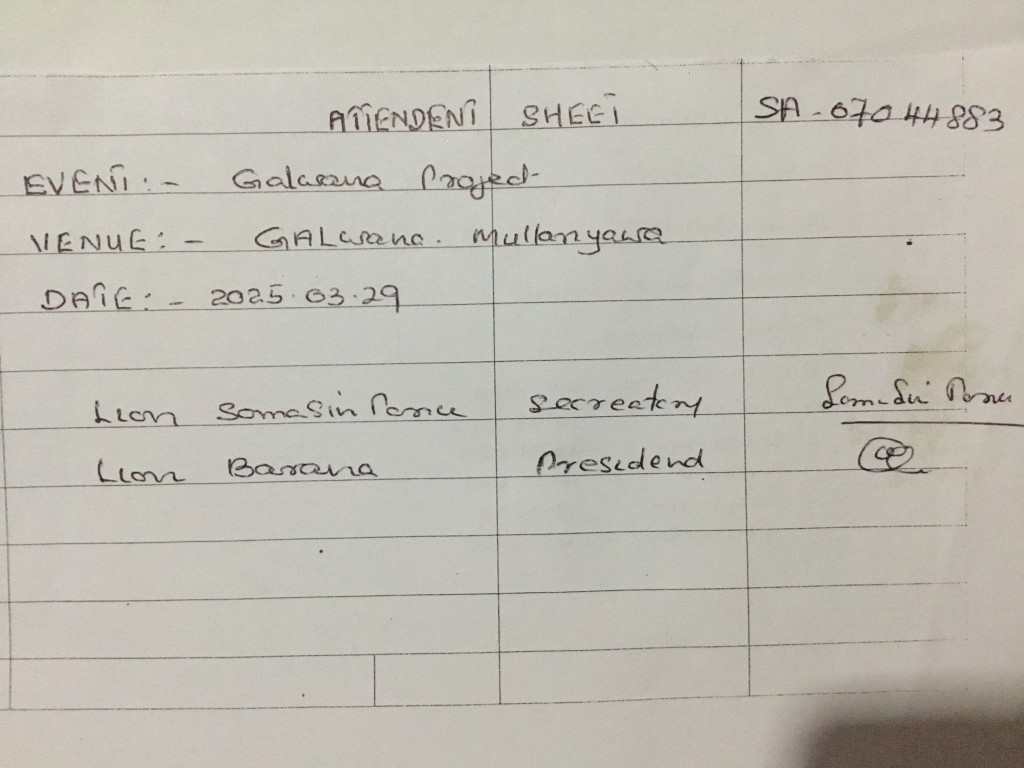 ATTENDENT SHEET SA-07044883
EVENT:- Galarana Project
VENUE:- GALarana. Mullanyawa
DATE:- 2025.03.29
Lion Somasin Secreatory
Lion Barana Presidend